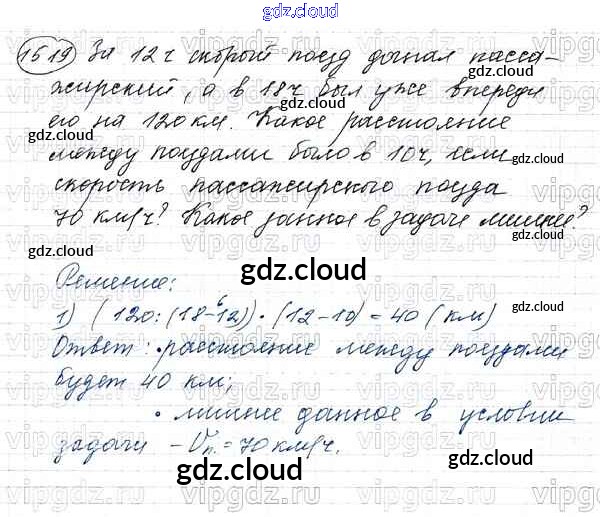 gdz.cloud
1519 За 12 ч скорый поезд догнал пасса-
жирский, а в 18 ч был уже впереди
его на 120 км. Какое расстояние
между поездами было в 10 ч, если
скорость пассажирского поезда
70 км/ч? Какое данное в задаче лишнее?
gdz.cloud
Решение:
1) (120 : (18-12)) · (12-10) = 40 (км)
Ответ: · расстояние между поездами
будет 40 км;
· лишнее данное в условии
задачи – Vп. = 70 км/ч.
gdz.cloud